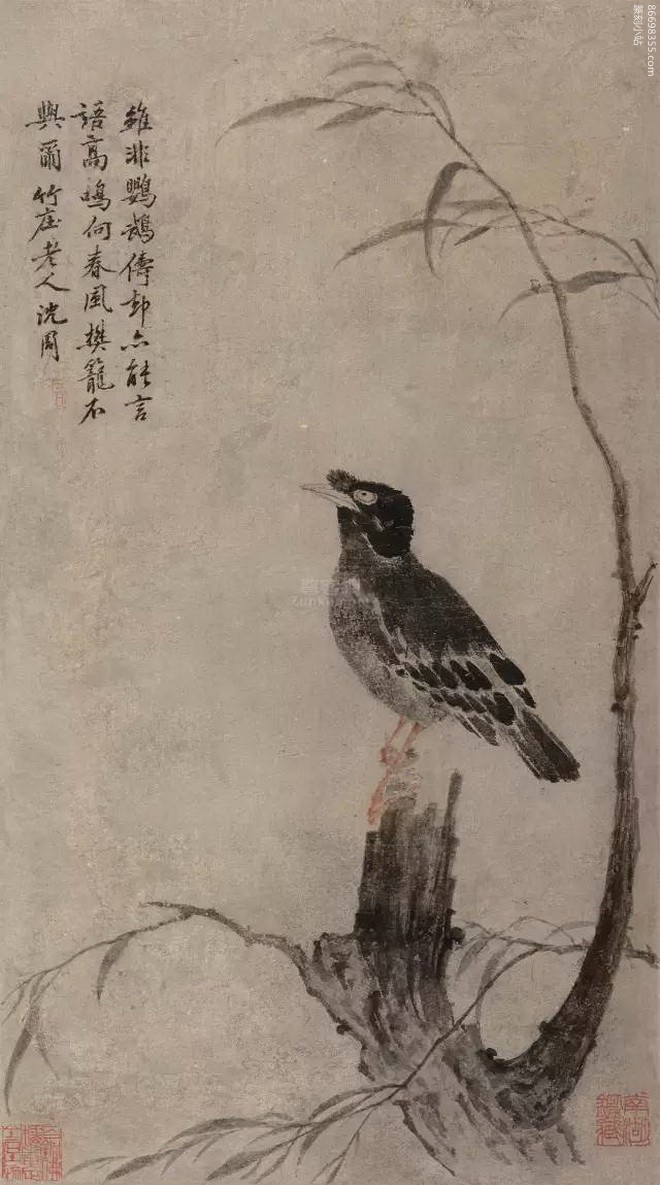 雖非鸚鵡儔却亦能言
語高鳴何春風樊籠不
與爾竹庄老人沈周
86698355.com
篆刻小站
南湖
鑑藏